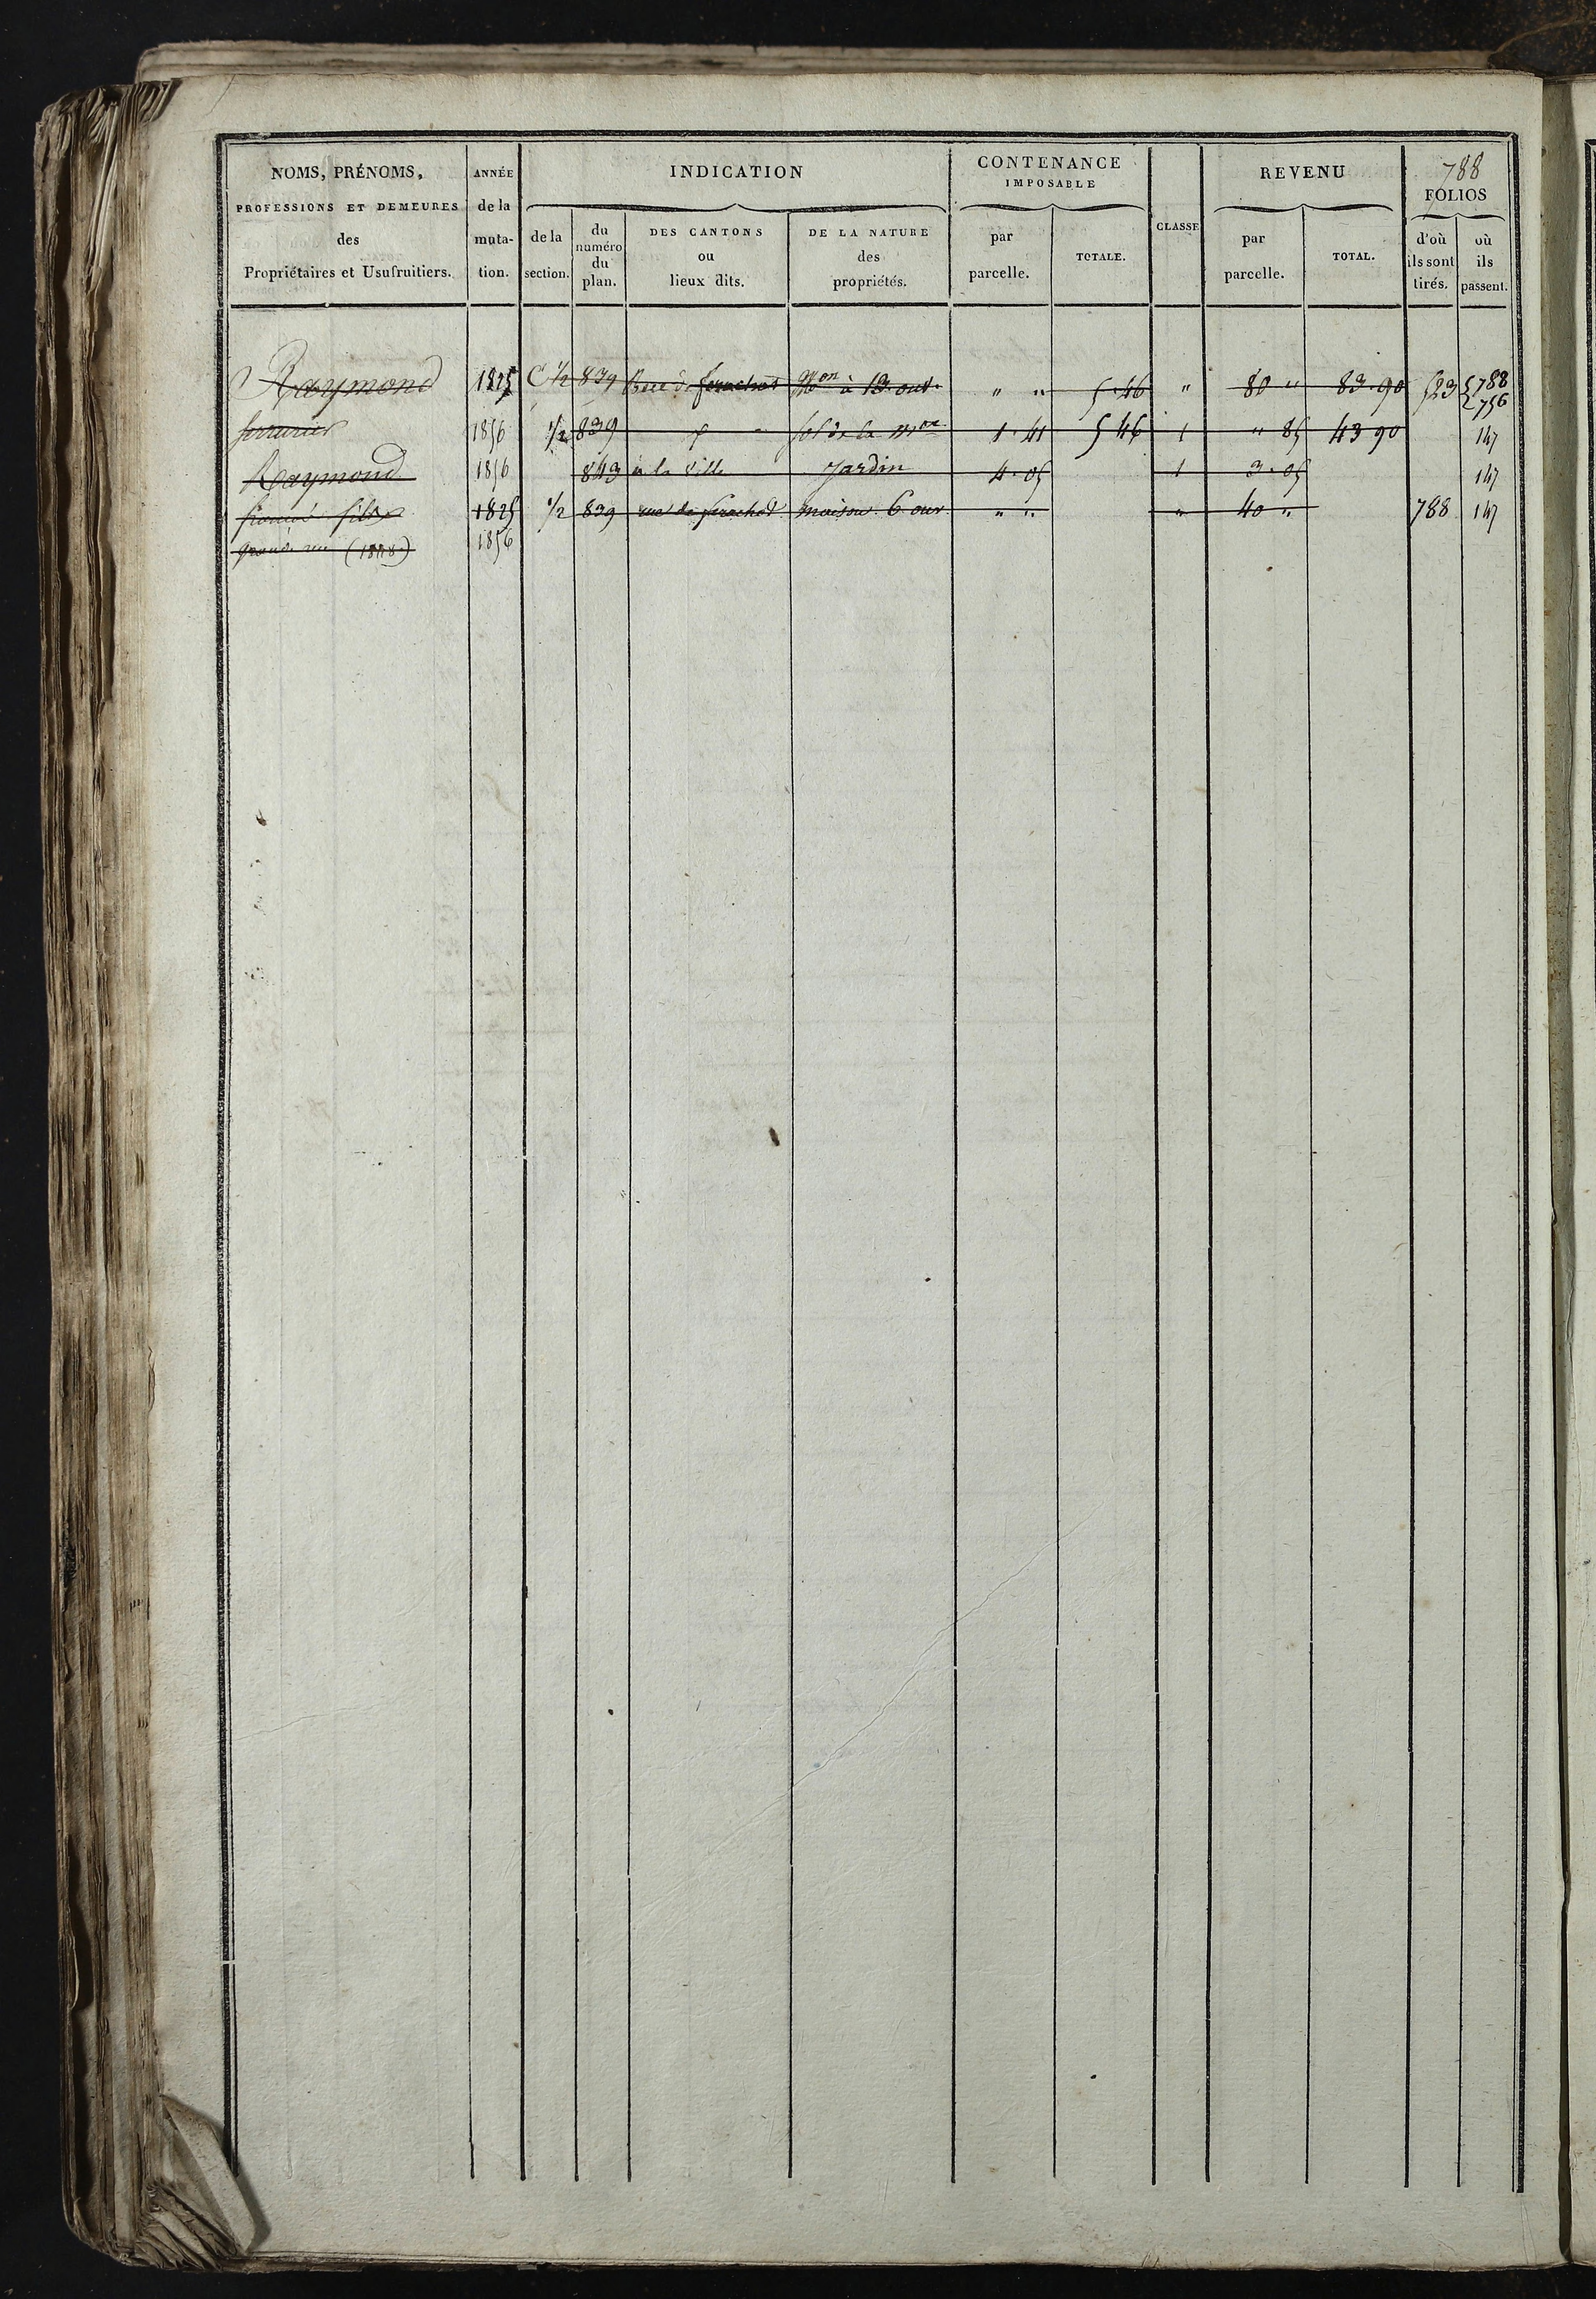 788
NOMS, PRÉNOMS, PROFESSIONS ET DEMEURES des Propriétaires et Usufruitiers.
ANNÉE de la muta-tion.
INDICATION
de la section.
du numéro du plan.
DES CANTONS ou lieux dits.
DE LA NATURE des propriétés.
CONTENANCE IMPOSABLE
par parcelle.
TOTALE.
CLASSE
REVENU
par parcelle.
TOTAL.
FOLIOS
d'où ils sont tirés.
où ils passent.
Raymond 1825 C 1/2 839 Rue de Mon à 13 ouv. " " 5.46 " 80 " 83.90 523 788 756
serrurier 1856 1/2 839 sol de la mon 1.41 5 46 1 " 85 43 90 147
Raymond 1856 843 à la ville Jardin 4.05 1 3.05 147
fils 1825 1/2 839 rue de maison 6 ouv " " " 40 " 788 147
grande rue 1856